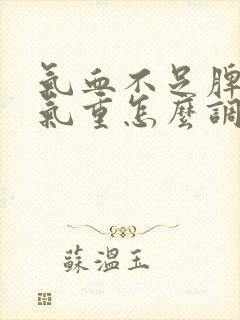 氣血不足脾
氣重怎麼調
蘇溫玉